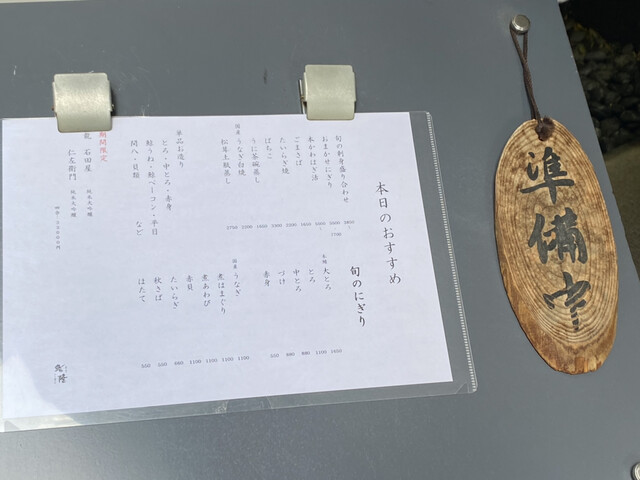 準備中
本日のおすすめ
旬の刺身盛り合わせ
おまかせにぎり
本かわはぎ活
ごまさば
たいらぎ焼
ばちこ
うに茶碗蒸し
国産 うなぎ白焼
松茸土瓶蒸し
単品お造り
とろ・中とろ・赤身
鯨うね・鯨ベーコン・平目
関八・貝類 など
旬のにぎり
本鮪 大とろ
とろ 1100
中とろ 880
づけ
赤身
国産 うなぎ 1100
煮はまぐり 1100
煮あわび 1100
赤貝 1100
たいらぎ 880
秋さば 550
ほたて 550
期間限定
龍 石田屋 純米大吟醸
仁左衛門 純米大吟醸
隆